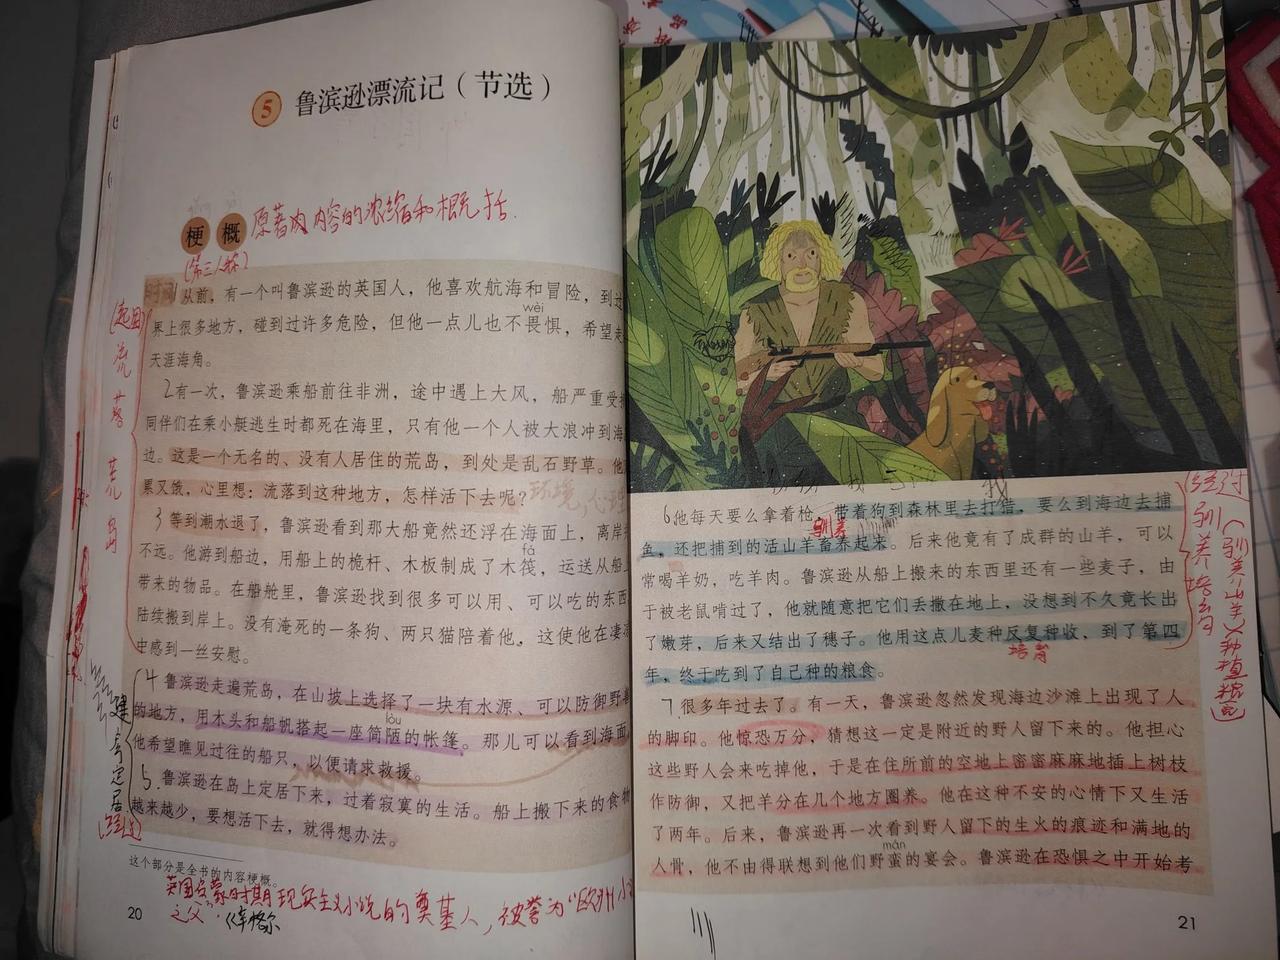 5 鲁滨逊漂流记（节选）
梗概 原著内内容的浓缩和概括.
(第三人称)
时间 1从前，有一个叫鲁滨逊的英国人，他喜欢航海和冒险，到过
wèi
界上很多地方，碰到过许多危险，但他一点儿也不畏惧，希望走
天涯海角。
2有一次，鲁滨逊乘船前往非洲，途中遇上大风，船严重受
同伴们在乘小艇逃生时都死在海里，只有他一个人被大浪冲到海
边。这是一个无名的、没有人居住的荒岛，到处是乱石野草。他
累又饿，心里想：流落到这种地方，怎样活下去呢？环境，心理
3等到潮水退了，鲁滨逊看到那大船竟然还浮在海面上，离岸
fá
不远。他游到船边，用船上的桅杆、木板制成了木筏，运送从船上
带来的物品。在船舱里，鲁滨逊找到很多可以用、可以吃的东西
陆续搬到岸上。没有淹死的一条狗、两只猫陪着他，这使他在凄凉
中感到一丝安慰。
4鲁滨逊走遍荒岛，在山坡上选择了一块有水源、可以防御野兽
lòu
的地方，用木头和船帆搭起一座简陋的帐篷。那儿可以看到海面
他希望瞧见过往的船只，以便请求救援。
5.鲁滨逊在岛上定居下来，过着寂寞的生活。船上搬下来的食物
越来越少，要想活下去，就得想办法。
(起因)
流落荒岛
建房定居
(经过)
这个部分是全书的内容梗概。
英国启蒙时期现实主义小说的奠基人，被誉为“欧洲小
之父”
20
6他每天要么拿着枪，带着狗到森林里去打猎，要么到海边去捕
驯养
鱼，还把捕到的活山羊畜养起来。后来他竟有了成群的山羊，可以
常喝羊奶，吃羊肉。鲁滨逊从船上搬来的东西里还有一些麦子，由
于被老鼠啃过了，他就随意把它们丢撒在地上，没想到不久竟长出
了嫩芽，后来又结出了穗子。他用这点儿麦种反复种收，到了第四
培育
年，终于吃到了自己种的粮食。
7.很多年过去了。有一天，鲁滨逊忽然发现海边沙滩上出现了人
的脚印。他惊恐万分，猜想这一定是附近的野人留下来的。他担心
这些野人会来吃掉他，于是在住所前的空地上密密麻麻地插上树枝
作防御，又把羊分在几个地方圈养。他在这种不安的心情下又生活
了两年。后来，鲁滨逊再一次看到野人留下的生火的痕迹和满地的
mán
人骨，他不由得联想到他们野蛮的宴会。鲁滨逊在恐惧之中开始考
经过
驯养培育
(驯养山羊)(种植粮食)
21